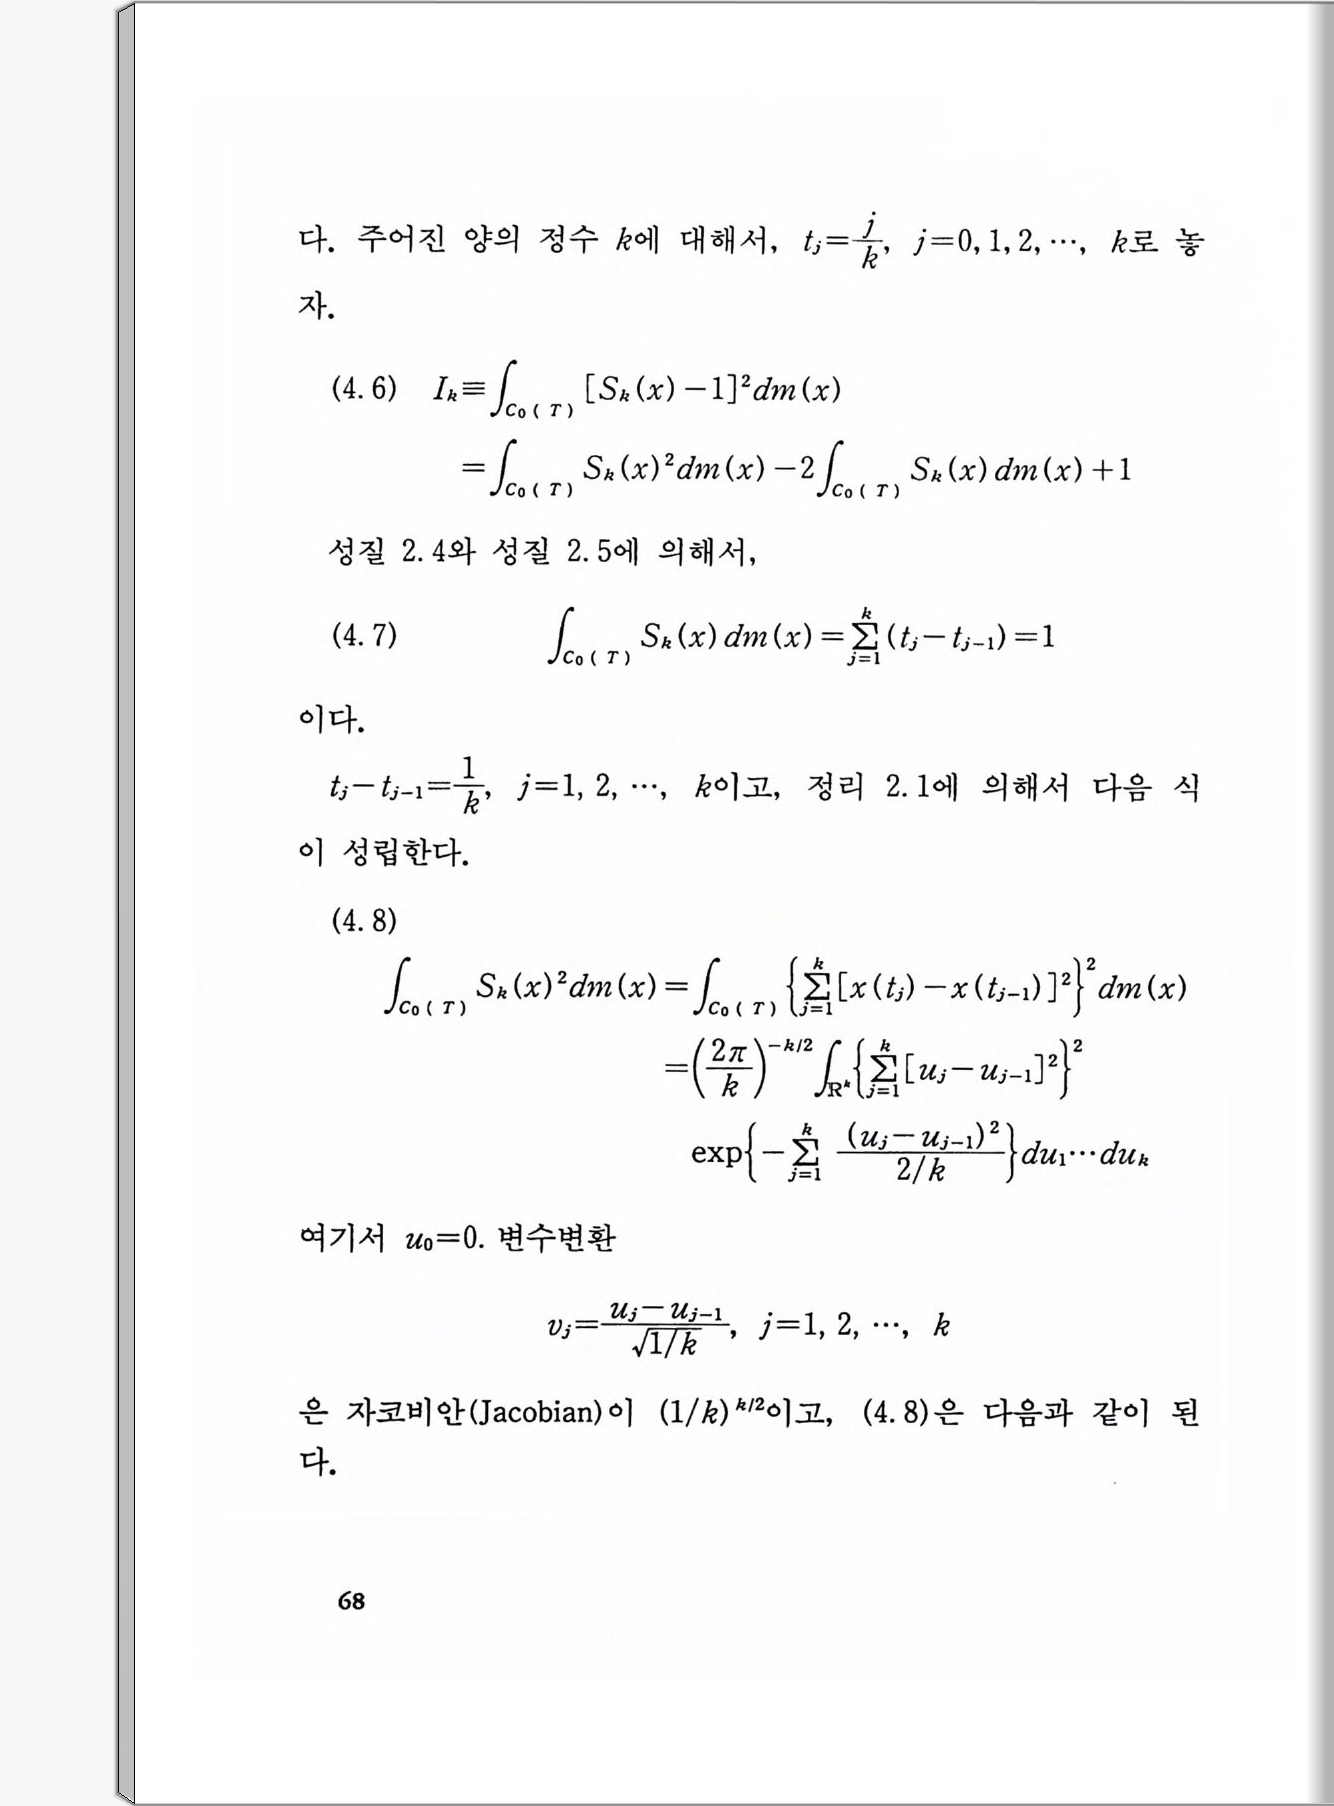 다. 주어진 양의 정수 k에 대해서, t_j=j/k, j=0, 1, 2, ⋯, k로 놓
자.
(4. 6) I_k≡∫_{C₀(T)} [S_k(x)−1]²dm(x)
=∫_{C₀(T)} S_k(x)²dm(x)−2∫_{C₀(T)} S_k(x)dm(x)+1
성질 2. 4와 성질 2. 5에 의해서,
(4. 7) ∫_{C₀(T)} S_k(x)dm(x)=∑_{j=1}^{k}(t_j−t_{j−1})=1
이다.
t_j−t_{j−1}=1/k, j=1, 2, ⋯, k이고, 정리 2. 1에 의해서 다음 식
이 성립한다.
(4. 8)
∫_{C₀(T)} S_k(x)²dm(x)=∫_{C₀(T)} {∑_{j=1}^{k}[x(t_j)−x(t_{j−1})]²}²dm(x)
=(2π/k)^{−k/2}∫_{ℝ^k}{∑_{j=1}^{k}[u_j−u_{j−1}]²}²
exp{−∑_{j=1}^{k} (u_j−u_{j−1})²/(2/k)}du₁⋯du_k
여기서 u₀=0. 변수변환
v_j=(u_j−u_{j−1})/√(1/k), j=1, 2, ⋯, k
은 자코비안(Jacobian)이 (1/k)^{k/2}이고, (4. 8)은 다음과 같이 된
다.
68